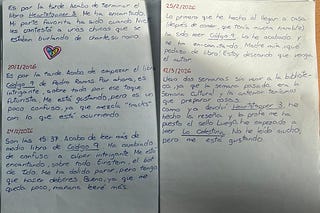 Es por la tarde. Acabo de terminar el
libro Heartstopper 3. Me ha encantado.
Mi parte favorita ha sido cuando Nick
les contestó a unos chicos que se
estaban burlando de Charles.
20/2/2026
Es por la tarde. Acabo de empezar el libro
Código 9 de Pedro Ramos. Por ahora, es
intrigante, sobre todo por ese toque
futurista. Me está gustando, pero es un
poco confuso, ya que mezcla
con lo que está ocurriendo.
24/2/2026
Son las 15:37. Acabo de leer más de
medio libro de Código 9. Ha cambiado
de confuso a súper intrigante. Me está
encantando, sobre todo Einstein, el bot
de Ido. Me ha dolido parar, pero tengo
que hacer deberes. Bueno, ya que me
queda poco, mañana leeré más.
25/2/2026
Lo primero que he hecho al llegar a casa
(después de comer, ya tenía mucha hambre)
ha sido leer Código 9. Lo he acabado, y
me ha encantado. Madre mía, ¡qué
pedazo de libro! Estoy deseando que venga
el autor.
12/3/2026
Llevo dos semanas sin venir a la bibliote-
ca, ya que la semana pasada era la
Semana Cultural y la anterior teníamos
que preparar cosas.
Como ya devolví Heartstopper 3, he
hecho la reseña y la profe me ha
puesto el sello. Luego he empezado a
leer La. No he leído mucho,
pero me está gustando.